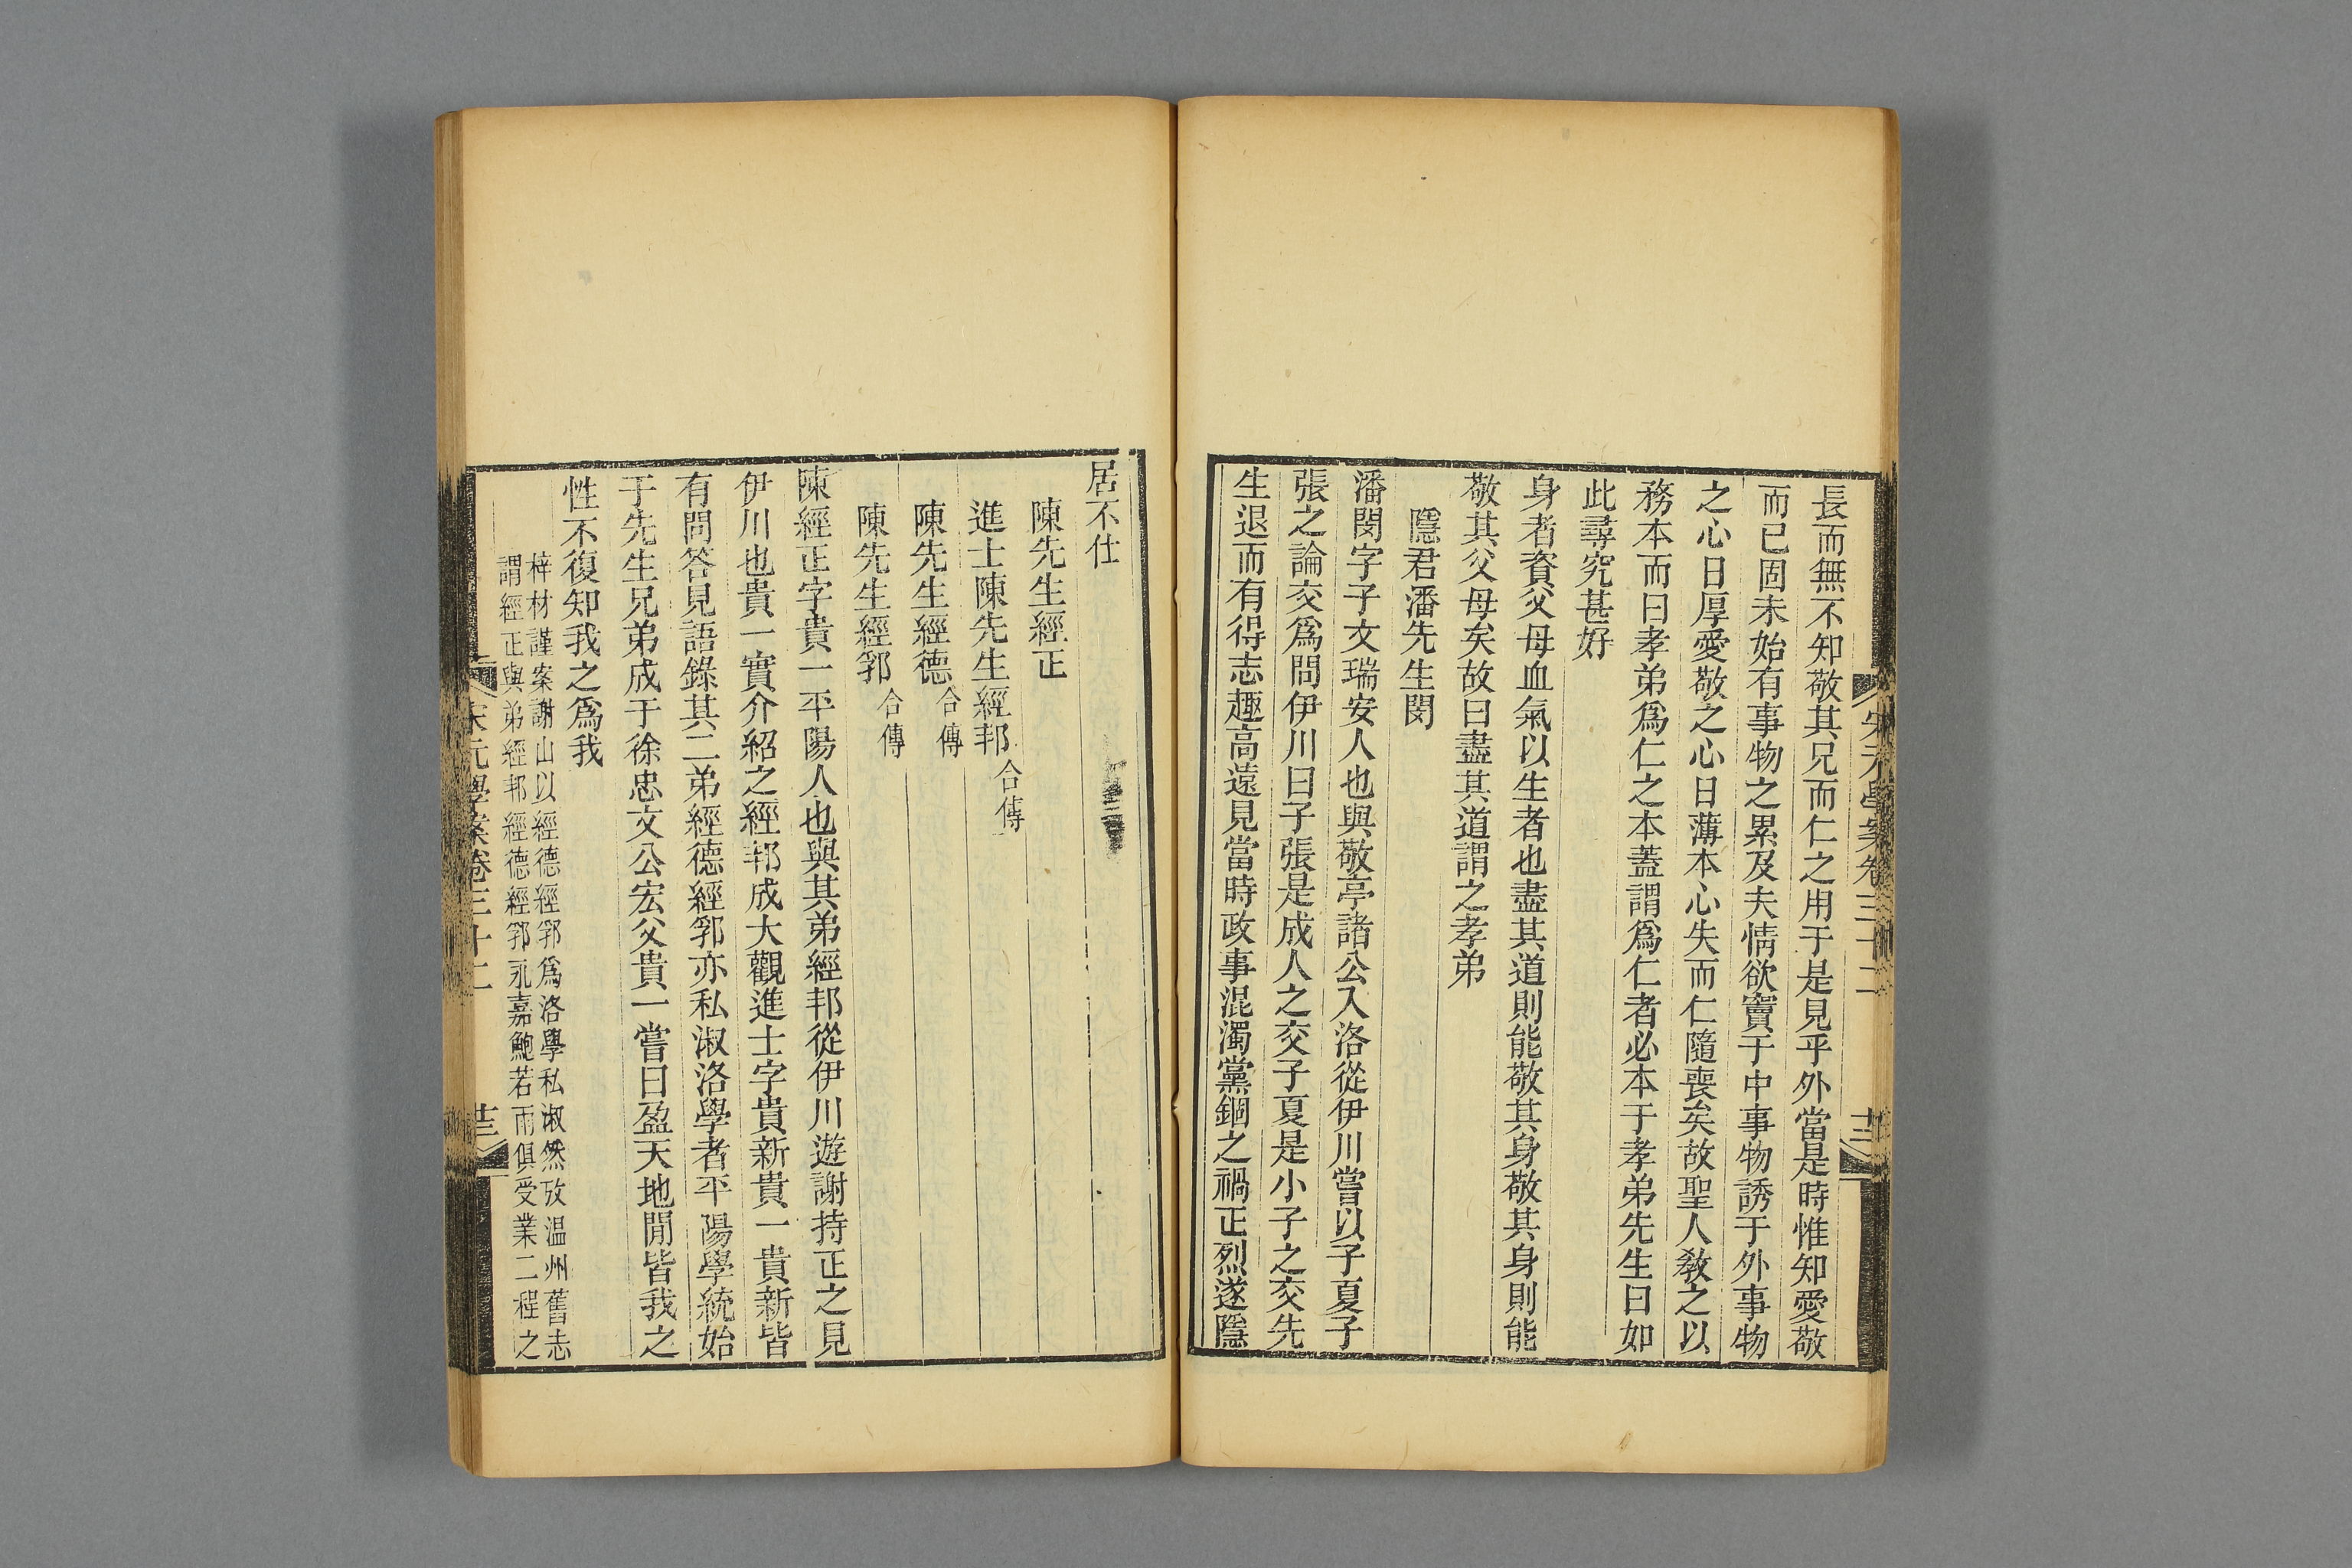 宋元學案卷三十二
長而無不知敬其兄而仁之用于是見乎外當是時惟知愛敬
而已固未始有事物之累及夫情欲竇于中事物誘于外事物
之心日厚愛敬之心日薄本心失而仁隨喪矣故聖人敎之以
務本而曰孝弟爲仁之本蓋謂爲仁者必本于孝弟先生曰如
此尋究甚好
身者資父母血氣以生者也盡其道則能敬其身敬其身則能
敬其父母矣故曰盡其道謂之孝弟
隱君潘先生閔
潘閔字子文瑞安人也與敬亭諸公入洛從伊川嘗以子夏子
張之論交爲問伊川曰子張是成人之交子夏是小子之交先
生退而有得志趣高遠見當時政事混濁黨錮之禍正烈遂隱
居不仕
陳先生經正
進士陳先生經邦合傳
陳先生經德合傳
陳先生經郛合傳
陳經正字貴一平陽人也與其弟經邦從伊川遊謝持正之見
伊川也貴一實介紹之經邦成大觀進士字貴新貴一貴新皆
有問答見語錄其二弟經德經郛亦私淑洛學者平陽學統始
于先生兄弟成于徐忠文公宏父貴一嘗曰盈天地閒皆我之
性不復知我之爲我
梓材謹案謝山以經德經郛爲洛學私淑然攷温州舊志
謂經正與弟經邦經德經郛永嘉鮑若雨俱受業二程之
宋元學案卷三十二